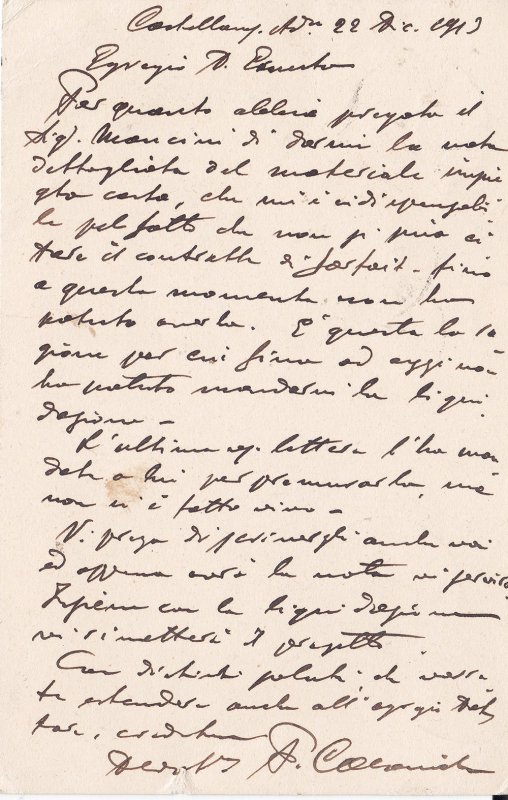 22 Dic. 1913
Egregio D. Ernesto
Per quanto abbia pregato il
Sig. Mancini di darmi la nota
dettagliata del materiale impie
gato costà, che mi è indispensabi
le pel fatto che non si può ci
tare il contratto di forfait - fino
a questo momento non ho
potuto averla. E' questa la ra
gione per cui fino ad oggi non
ho potuto mandarvi la liqui
dazione -
L'ultima lettera l'ho man
data a lui per premurarlo, ma
non si è fatto vivo -
Vi prego di scrivergli anche voi
ed appena avrò la nota vi
Insieme con la liquidazione
vi si metterà il progetto
Con distinti saluti che vorre
te estendere anche all'egregio Dot
tore, credetemi
F.